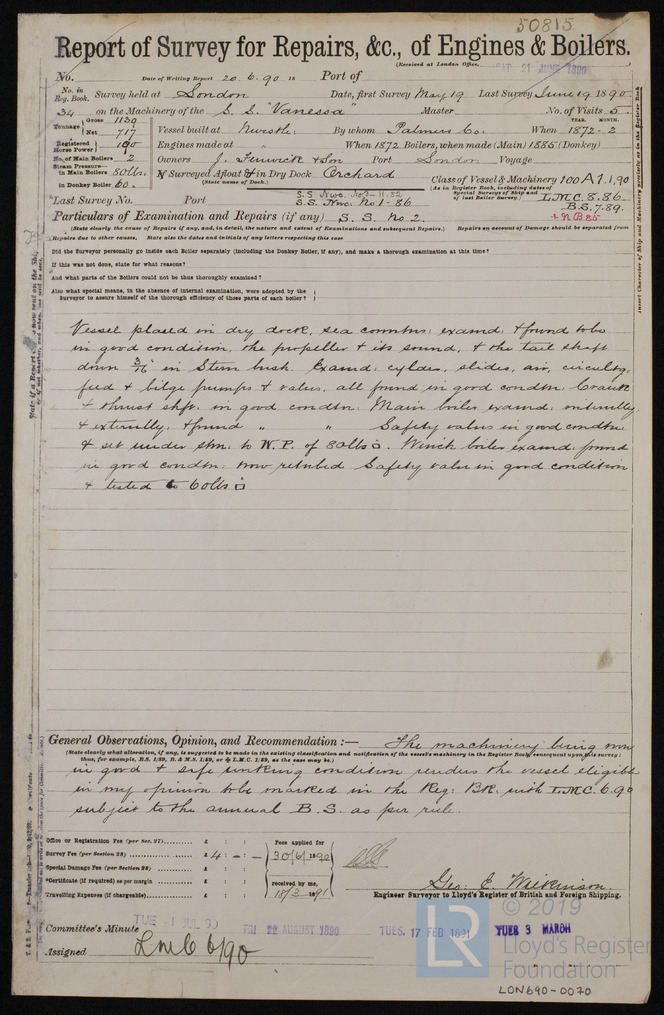 50815
Report of Survey for Repairs, &c., of Engines & Boilers.
(Received at London Office, SAT 21 JUNE 1890
No. Date of Writing Report 20.6.90 18 Port of
No. in Reg. Book. Survey held at London Date, first Survey May 19 Last Survey June 19 1890
34 on the Machinery of the S.S. "Vanessa" Master No. of Visits 5
Tonnage Gross 1139 Net 717 Vessel built at Nwcstle: By whom Palmers Co. When YEAR. MONTH. 1872-2
Registered Horse Power 190 Engines made at " When 1872 Boilers, when made (Main) 1885 (Donkey)
No. of Main Boilers 2 Owners J. Fenwick & Son Port London Voyage
Steam Pressure in Main Boilers 80lbs. If Surveyed Afloat & in Dry Dock Orchard Class of Vessel & Machinery 100A1.1,90
(State name of Dock.) (As in Register Book, including dates of Special Surveys of Ship and of last Boiler Survey.) L.M.C. 8.86.
in Donkey Boiler 60. S.S. Nwc. No3-11.82 B.S. 7.89.
Last Survey No. Port S.S. Nwc. No1-86 + NB85
Particulars of Examination and Repairs (if any) S.S. No 2.
(State clearly the cause of Repairs if any, and, in detail, the nature and extent of Examinations and subsequent Repairs.) Repairs on account of Damage should be separated from
Repairs due to other causes. State also the dates and initials of any letters respecting this case
Did the Surveyor personally go inside each Boiler separately (including the Donkey Boiler, if any), and make a thorough examination at this time?
If this was not done, state for what reasons?
And what parts of the Boilers could not be thus thoroughly examined?
Also what special means, in the absence of internal examination, were adopted by the Surveyor to assure himself of the thorough efficiency of those parts of each boiler?
Vessel placed in dry dock, sea conntns: examd: & found to be
in good condition, the propeller & its sound, & the tail shaft
down 3/16 in Stern bush. Examd: cylders, slides, air, circulatg,
feed & bilge pumps & valves, all found in good condtn: Crank
& thrust shft: in good condtn: Main boiler examd: internally
& externally: & found " " Safety valves in good condtn
& set under stm: to W.P. of 80lbs □. Winch boiler examd: found
in good condtn: now retubed Safety valve in good condition
& tested to 60lbs □
General Observations, Opinion, and Recommendation:— The machinery being now
(State clearly what alteration, if any, is suggested to be made in the existing classification and notification of the vessel's machinery in the Register Book, subsequent upon this survey:
thus, for example, B.S. 1/89, B. & M.S. 1/89, or & L.M.C. 1/89, as the case may be.)
in good & safe working condition renders the vessel eligible
in my opinion to be marked in the Reg: Bk. with L.M.C. 6.90
subject to the annual B.S. as per rule.
Office or Registration Fee (per Sec. 27) £ : :
Survey Fee (per Section 28) £ 4 - : -
Special Damage Fee (per Section 28) £ : :
*Certificate (if required) as per margin £ : :
Travelling Expenses (if chargeable) £ : :
Fees applied for 30/6/1890
received by me, 18/3 1891
Geo: E. Wilkinson.
Engineer Surveyor to Lloyd's Register of British and Foreign Shipping.
Committee's Minute TUE 1 JUL 90 FRI 22 AUGUST 1890 TUES. 17 FEB 1891 TUES 3 MARCH
Assigned LMC 6/90
© 2019
LR
Lloyd's Register
Foundation
LON690-0070